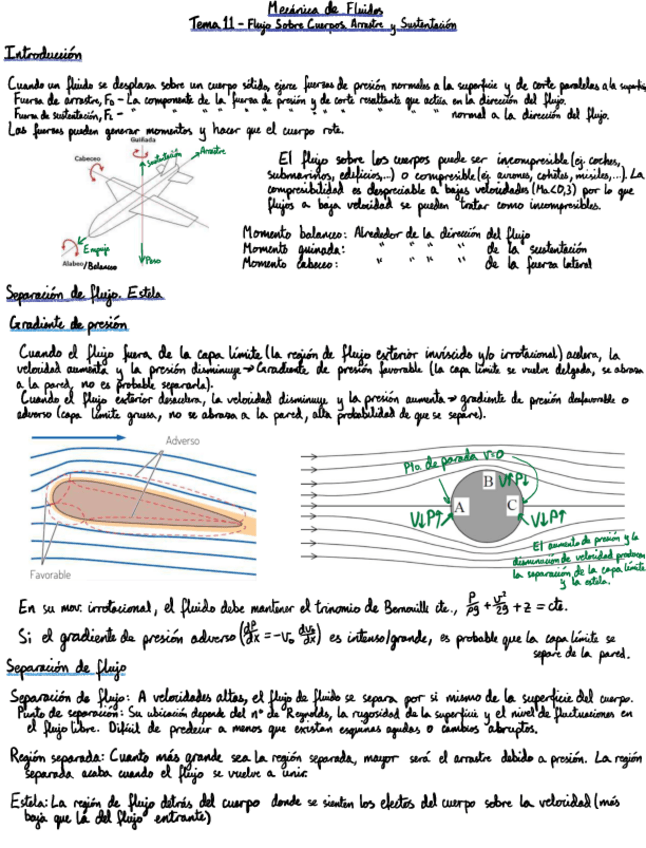 Mecánica de Fluidos
Tema 11 - Flujo Sobre Cuerpos. Arrastre y Sustentación
Introducción
Cuando un fluido se desplaza sobre un cuerpo sólido, ejerce fuerzas de presión normales a la superficie y de corte paralelas a la superfi
Fuerza de arrastre, FD - La componente de la fuerza de presión y de corte resultante que actúa en la dirección del flujo.
Fuerza de sustentación, FL - " " " " " " " " " " " " normal a la dirección del flujo.
Las fuerzas pueden generar momentos y hacer que el cuerpo rote.
Guiñada
Cabeceo
Sustentación
Arrastre
Empuje
Peso
Alabeo/Balanceo
El flujo sobre los cuerpos puede ser incompresible (ej. coches,
submarinos, edificios,...) o compresible (ej. aviones, cohetes, misiles,...). La
compresibilidad es despreciable a bajas velocidades (Ma<0,3) por lo que
flujos a baja velocidad se pueden tratar como incompresibles.
Momento balanceo: Alrededor de la dirección del flujo
Momento guinada: " " " " de la sustentación
Momento cabeceo: " " " " de la fuerza lateral
Separación de flujo. Estela
Gradiente de presión
Cuando el flujo fuera de la capa límite (la región de flujo exterior inviscido y/o irrotacional) acelera, la
velocidad aumenta y la presión disminuye → Gradiente de presión favorable (la capa límite se vuelve delgada, se abraza
a la pared, no es probable separarla).
Cuando el flujo exterior desacelera, la velocidad disminuye y la presión aumenta → gradiente de presión desfavorable o
adverso (capa límite gruesa, no se abraza a la pared, alta probabilidad de que se separe).
Adverso
Favorable
Pto. de parada v=0
B V↑P↓
A
C
V↓P↑
V↓P↑
El aumento de presión y la
disminución de velocidad producen
la separación de la capa límite
y la estela.
En su mov. irrotacional, el fluido debe mantener el trinomio de Bernouilli cte., P/ρg + v²/2g + z = cte.
Si el gradiente de presión adverso (dP/dx = -v₀ dv₀/dx) es intenso/grande, es probable que la capa límite se
separe de la pared.
Separación de flujo
Separación de flujo: A velocidades altas, el flujo de fluido se separa por si mismo de la superficie del cuerpo.
Punto de separación: Su ubicación depende del nº de Reynolds, la rugosidad de la superficie y el nivel de fluctuaciones en
el flujo libre. Difícil de predecir a menos que existan esquinas agudas o cambios abruptos.
Región separada: Cuanto más grande sea la región separada, mayor será el arrastre debido a presión. La región
separada acaba cuando el flujo se vuelve a unir.
Estela: La región de flujo detrás del cuerpo donde se sienten los efectos del cuerpo sobre la velocidad (más
baja que la del flujo entrante)